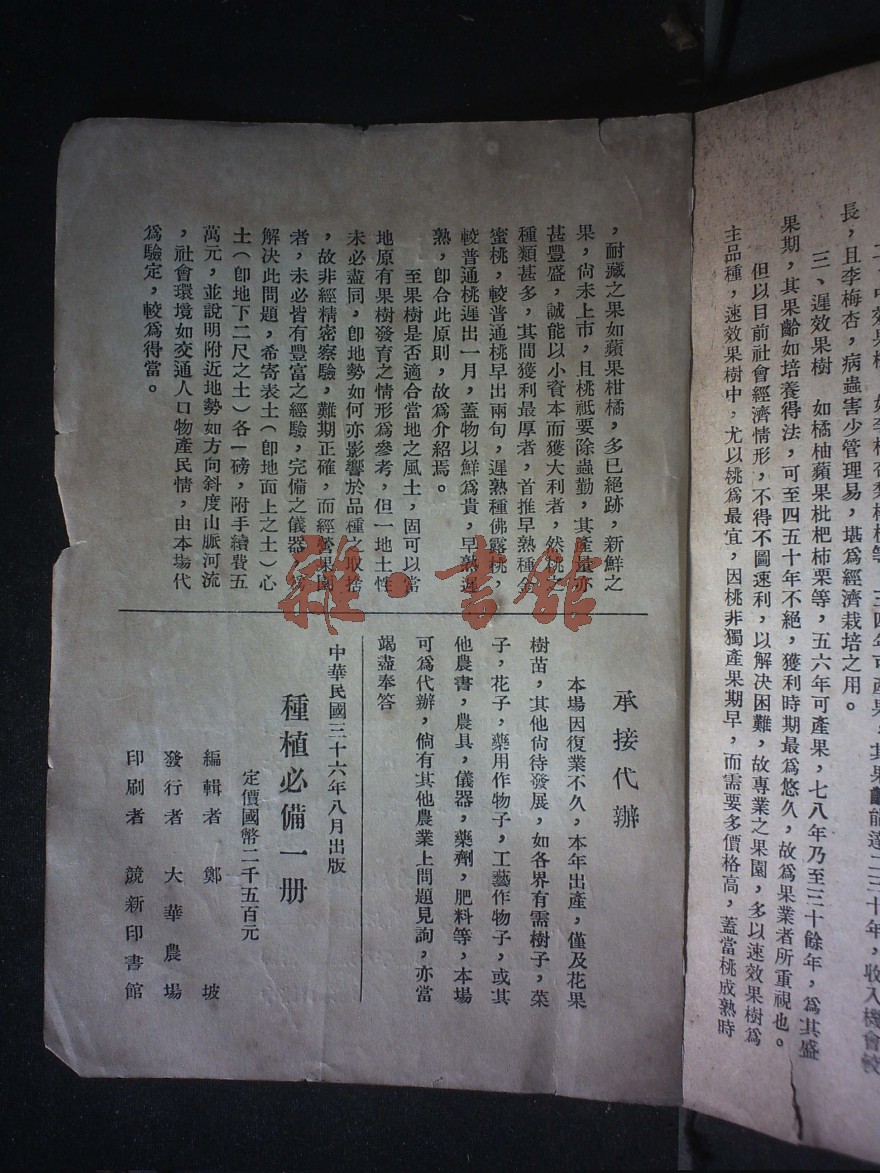 長，且李梅杏，病蟲害少管理易，堪爲經濟栽培之用。
三、遲效果樹　如橘柚蘋果枇杷柿栗等，五六年可產果，七八年乃至三十餘年，爲其盛
果期，其果齡如培養得法，可至四五十年不絕，獲利時期最爲悠久，故爲果業者所重視也。
但以目前社會經濟情形，不得不圖速利，以解決困難，故專業之果園，多以速效果樹爲
主品種，速效果樹中，尤以桃爲最宜，因桃非獨產果期早，而需要多價格高，蓋當桃成熟時
，耐藏之果如蘋果柑橘，多已絕跡，新鮮之
果，尙未上市，且桃祗要除蟲勤，其產量亦
甚豐盛，誠能以小資本而獲大利者，然桃之
種類甚多，其間獲利最厚者，首推早熟種金
蜜桃，較普通桃早出兩旬，遲熟種佛露桃，
較普通桃遲出一月，蓋物以鮮爲貴，早熟遲
熟，卽合此原則，故爲介紹焉。
至果樹是否適合當地之風土，固可以當
地原有果樹發育之情形爲參考，但一地土性
未必盡同，卽地勢如何亦影響於品種之取捨
，故非經精密察驗，難期正確，而經營果園
者，未必皆有豐富之經驗，完備之儀器，爲
解決此問題，希寄表土（卽地面上之土）心
土（卽地下二尺之土）各一磅，附手續費五
萬元，並說明附近地勢如方向斜度山脈河流
，社會環境如交通人口物產民情，由本塲代
爲驗定，較爲得當。
承接代辦
本塲因復業不久，本年出產，僅及花果
樹苗，其他尙待發展，如各界有需樹子，菜
子，花子，藥用作物子，工藝作物子，或其
他農書，農具，儀器，藥劑，肥料等，本塲
可爲代辦，倘有其他農業上問題見詢，亦當
竭盡奉答
中華民國三十六年八月出版
種植必備一册
定價國幣二千五百元
編輯者　鄭坡
發行者　大華農塲
印刷者　競新印書館
雜·書館